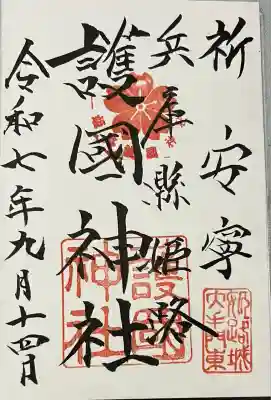 祈安寧
兵庫縣姫路
護國神社
令和七年九月十四日
護國
神社
姫路城
大手門東